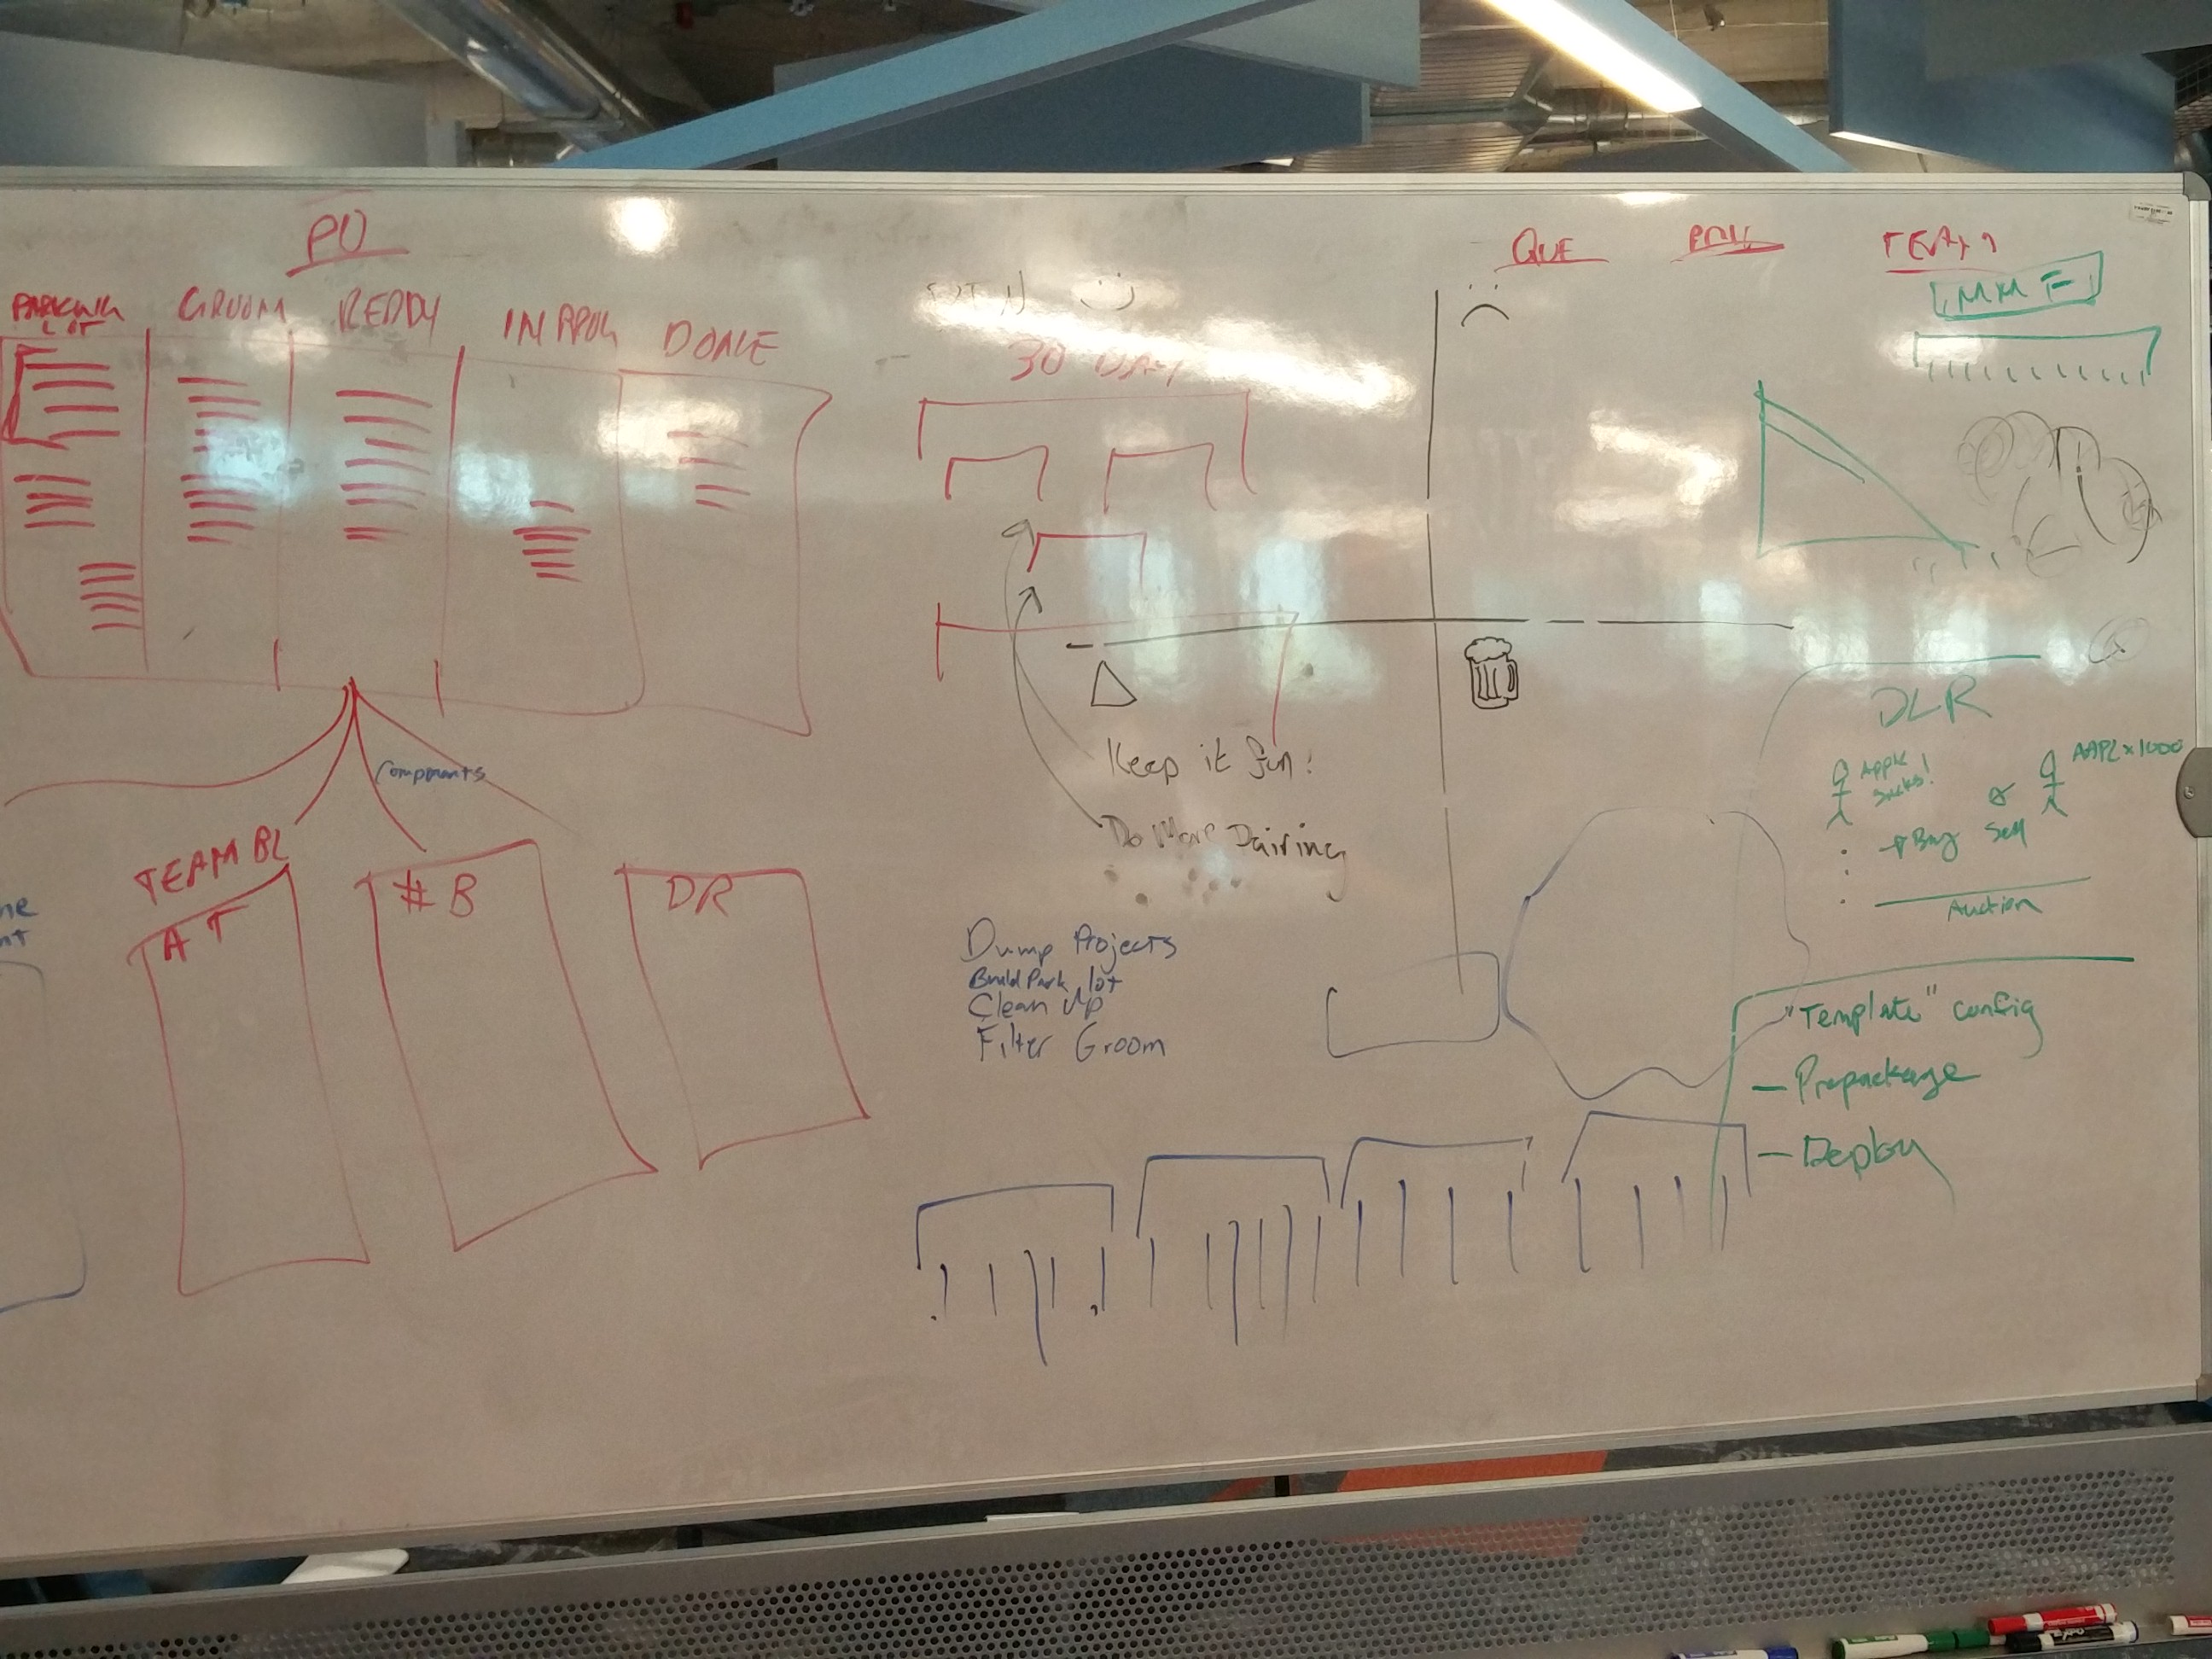 PO
PARKING LOT
GROOM
READY
IN PROG
DONE
30 DAY
QUE
TEAM
MMF
Components
TEAM BL
AT
# B
DR
Keep it fun!
Do More Pairing
Dump Projects
Build Park lot
Clean Up
Filter Groom
DLR
Apple Sucks!
AAPL x 1000
Buy
Sell
Auction
"Template" config
- Prepackage
- Deploy
EXPO